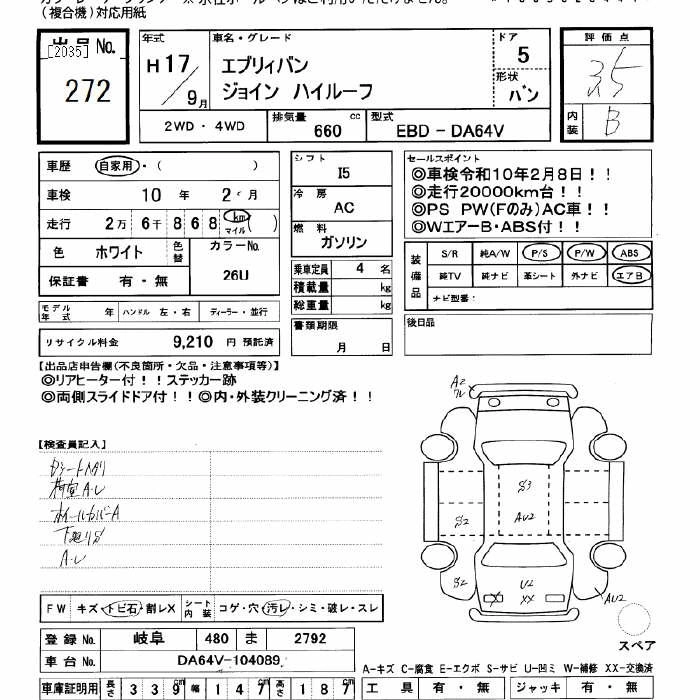 (複合機)対応用紙
出品No.
[2035]
272
年式
H17/9月
車名・グレード
エブリィバン
ジョイン ハイルーフ
ドア
5
形状
バン
評価点
3.5
内装
B
2WD・4WD
排気量
660 cc
型式
EBD-DA64V
車歴 自家用・( )
車検 10年 2月
走行 2万6千868 km マイル ( )
色 ホワイト 色替 カラーNo.
26U
保証書 有・無
モデル年式 年 ハンドル 左・右 ディーラー・並行
リサイクル料金 9,210 円 預託済
シフト
I5
冷房
AC
燃料
ガソリン
乗車定員 4 名
積載量 kg
総重量 kg
書類期限
月 日
セールスポイント
◎車検令和10年2月8日!!
◎走行20000km台!!
◎PS PW(Fのみ)AC車!!
◎WエアーB・ABS付!!
装備品
S/R 純A/W P/S P/W ABS
純TV 純ナビ 革シート 外ナビ エアB
ナビ型番:
後日品
【出品店申告欄(不良箇所・欠品・注意事項等)】
◎リアヒーター付!!ステッカー跡
◎両側スライドドア付!!◎内・外装クリーニング済!!
【検査員記入】
荷室A・U
ホイールカバーA
下廻りS
A・U
A2
S3
AU2
S2
S2
U2
XX
X
AU2
スペア
FW キズ・トビ石・割レX シート内装 コゲ・穴・汚レ・シミ・破レ・スレ
登録No. 岐阜 480 ま 2792
車台No. DA64V-104089
車庫証明用 長さ 339cm 幅 147cm 高さ 187
A-キズ C-腐食 E-エクボ S-サビ U-凹ミ W-補修 XX-交換済
工具 有・無 ジャッキ 有・無